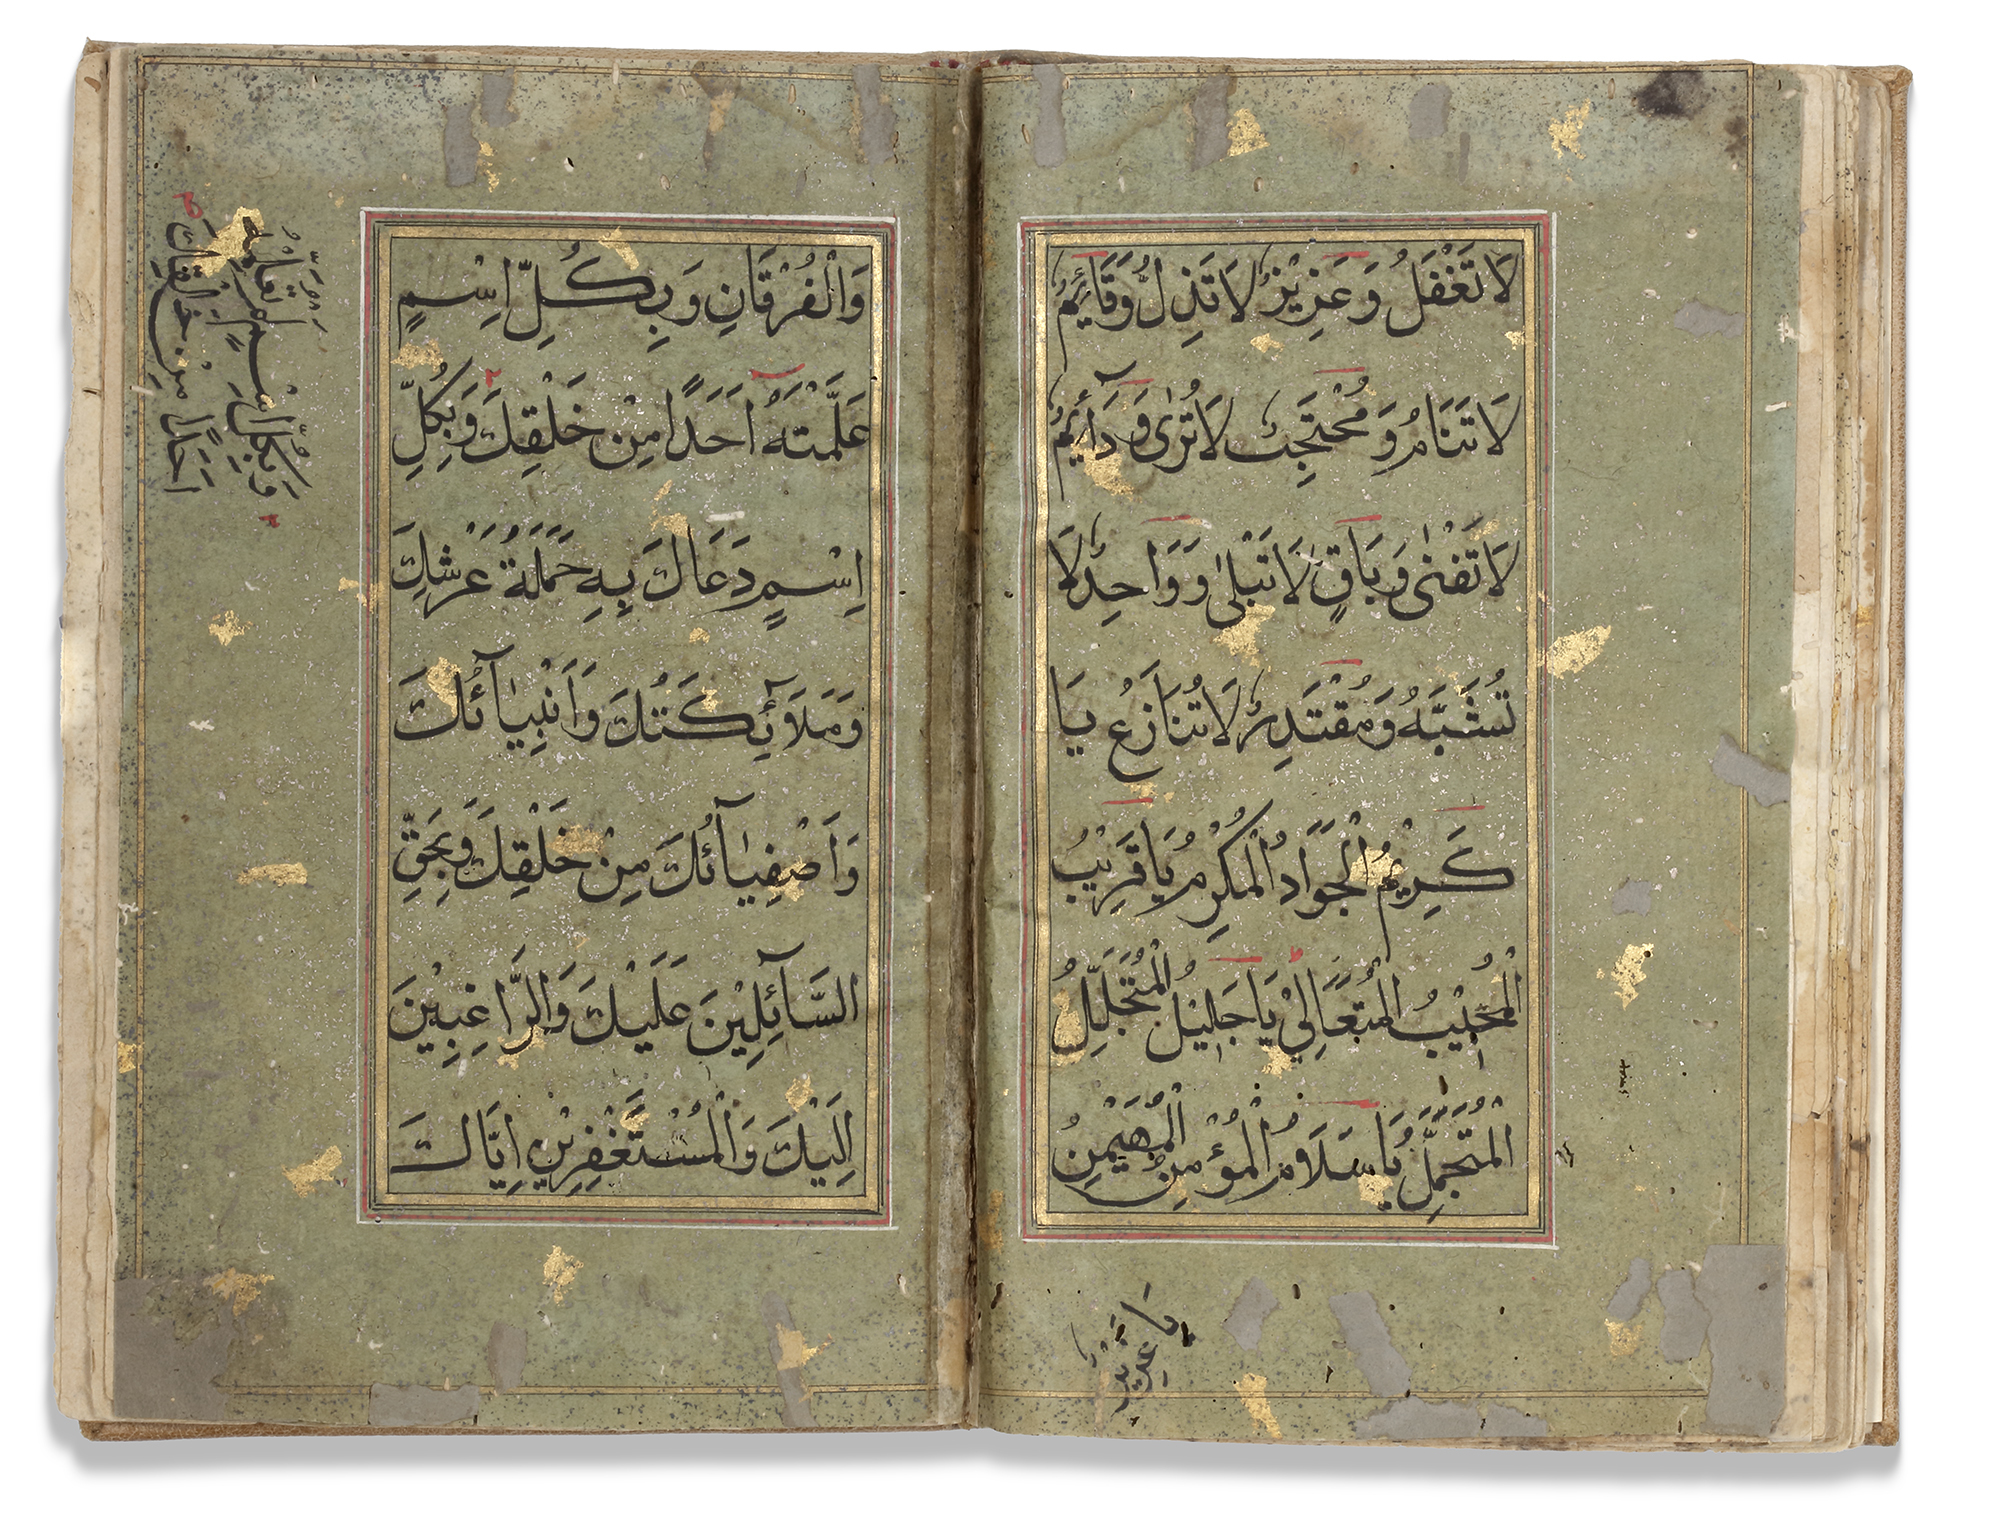 لَا تَغْفَلُ وَعَزِيْزٌ لَا تَذِلُّ وَقَآئِمٌ
لَا تَنَامُ وَمُحْتَجِبٌ لَا تُرٰى وَدَآئِمٌ
لَا تَفْنٰى وَبَاقٍ لَا تَبْلٰى وَوَاحِدٌ لَا
تُشَبَّهُ وَمُقْتَدِرٌ لَا تُنَازَعُ يَا
كَرِيْمُ الْجَوَادُ الْمُكْرِمُ يَا قَرِيْبُ
الْمُجِيْبُ الْمُتَعَالِيْ يَا جَلِيْلُ الْمُتَجَلِّلُ
الْمُتَجَمِّلُ يَا سَلَامُ الْمُؤْمِنُ الْمُهَيْمِنُ
يَا عَزِيْزُ
وَالْفُرْقَانِ وَبِكُلِّ اِسْمٍ
عَلَّمْتَهُ اَحَدًا مِنْ خَلْقِكَ وَبِكُلِّ
اِسْمٍ دَعَاكَ بِهِ حَمَلَةُ عَرْشِكَ
وَمَلَآئِكَتُكَ وَاَنْبِيَآئُكَ
وَاَصْفِيَآئُكَ مِنْ خَلْقِكَ وَبِحَقِّ
السَّآئِلِيْنَ عَلَيْكَ وَالرَّاغِبِيْنَ
اِلَيْكَ وَالْمُسْتَغْفِرِيْنَ اِيَّاكَ
وَبِكُلِّ اِسْمٍ
اَحَدًا مِنْ خَلْقِكَ